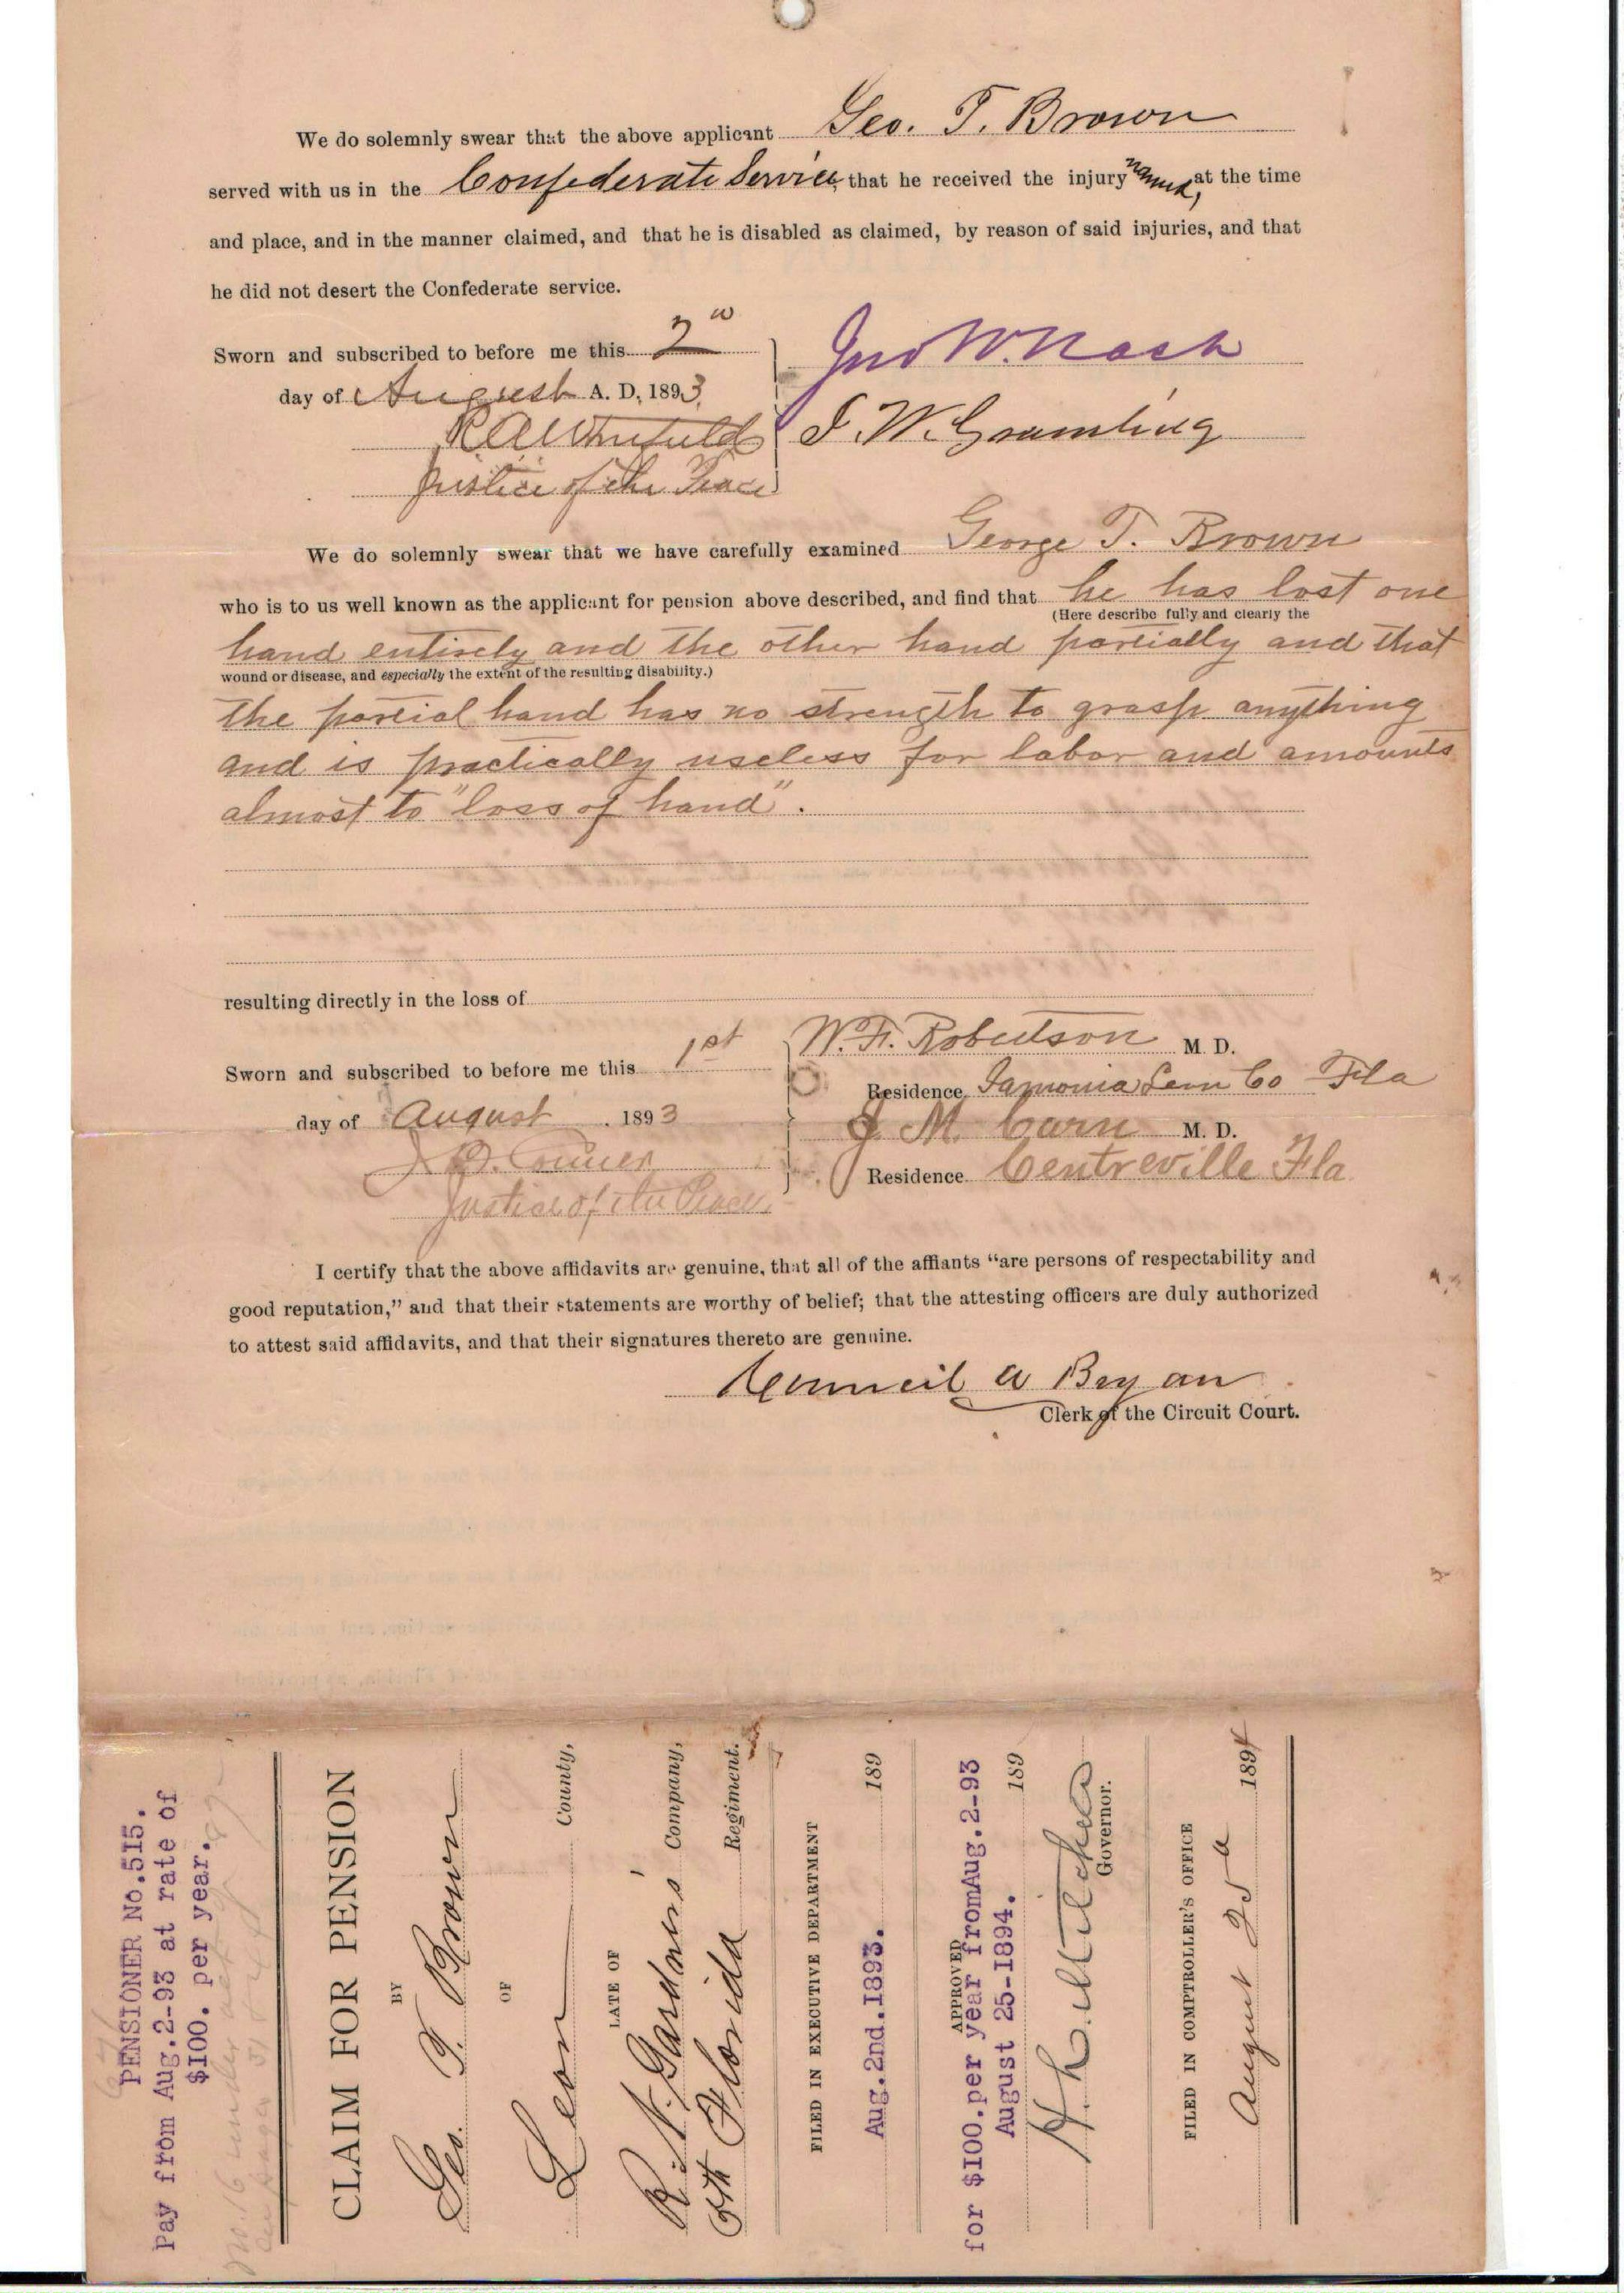 We do solemnly swear that the above applicant Geo. T. Brown
served with us in the Confederate Service, that he received the injury named, at the time
and place, and in the manner claimed, and that he is disabled as claimed, by reason of said injuries, and that
he did not desert the Confederate service.
Sworn and subscribed to before me this 2nd
day of August A. D, 1893
Jno W. Nash
J. W. Gramling
Justice of the Peace
We do solemnly swear that we have carefully examined George T. Brown
who is to us well known as the applicant for pension above described, and find that he has lost one
(Here describe fully and clearly the
hand entirely and the other hand partially and that
wound or disease, and especially the extent of the resulting disability.)
the partial hand has no strength to grasp anything
and is practically useless for labor and amounts
almost to "loss of hand".
resulting directly in the loss of
Sworn and subscribed to before me this 1st
day of August . 1893
Justice of the Peace
W. F. Robertson M. D.
Residence Iamonia Leon Co Fla
J. M. Carn M. D.
Residence Centreville Fla
I certify that the above affidavits are genuine, that all of the affiants “are persons of respectability and
good reputation,” and that their statements are worthy of belief; that the attesting officers are duly authorized
to attest said affidavits, and that their signatures thereto are genuine.
Council A Bryan
Clerk of the Circuit Court.
PENSIONER No.515.
Pay from Aug.2-93 at rate of
$100. per year.
CLAIM FOR PENSION
BY
Geo. T. Brown
OF
Leon County,
LATE OF
R. N. Gardner's Company,
5th Florida Regiment.
FILED IN EXECUTIVE DEPARTMENT
Aug.2nd.1893. 189
APPROVED
for $100.per year fromAug.2-93
August 25-1894. 189
H. L. Mitchell
Governor.
FILED IN COMPTROLLER'S OFFICE
August 25 a 1894